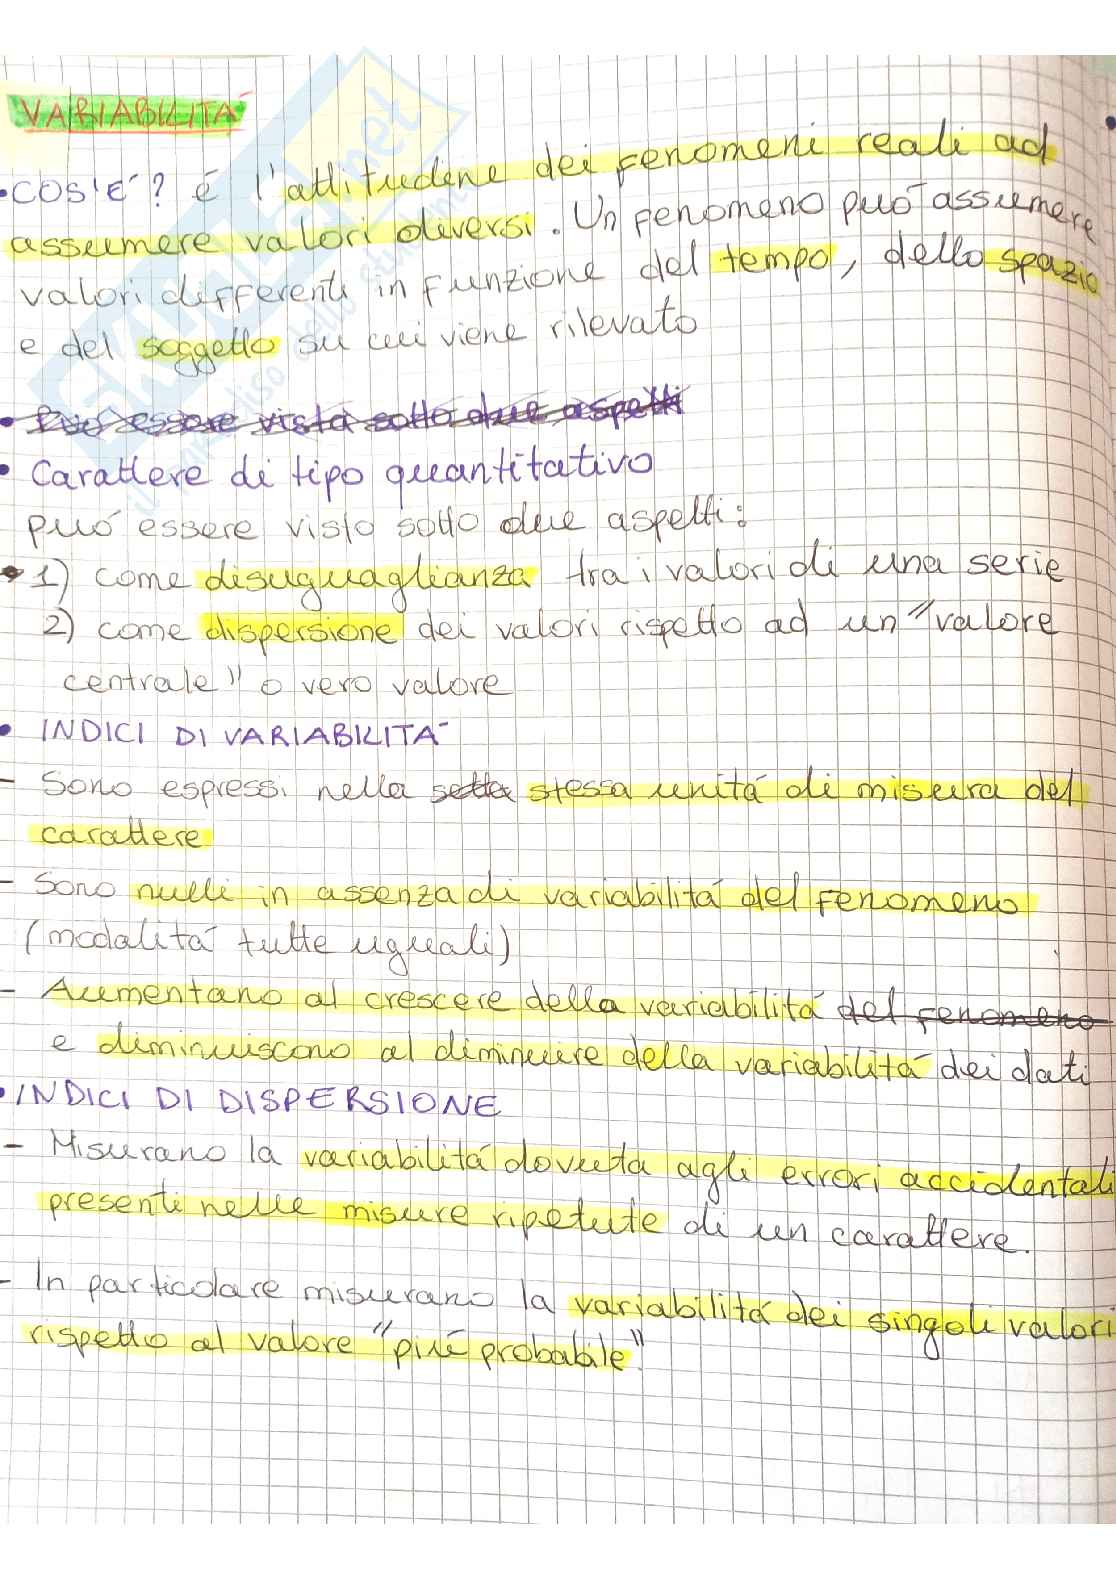 VARIABILITÁ
• COS'É? é l'attitudine dei fenomeni reali ad
assumere valori diversi. Un fenomeno puó assumere
valori differenti in funzione del tempo, dello spazio
e del soggetto su cui viene rilevato
• Puó essere vista sotto due aspetti
• Carattere di tipo quantitativo
puó essere visto sotto due aspetti:
• 1) come disuguaglianza tra i valori di una serie
2) come dispersione dei valori rispetto ad un "valore
centrale" o vero valore
• INDICI DI VARIABILITÁ
- Sono espressi nella setta stessa unitá di misura del
carattere
- Sono nulli in assenza di variabilitá del fenomeno
(modalitá tutte uguali)
- Aumentano al crescere della variabilitá del fenomeno
e diminuiscono al diminuire della variabilitá dei dati
• INDICI DI DISPERSIONE
- Misurano la variabilitá dovuta agli errori accidentali
presenti nelle misure ripetute di un carattere.
- In particolare misurano la variabilitá dei singoli valori
rispetto al valore "piú probabile"
skuola.net
il paradiso dello studente